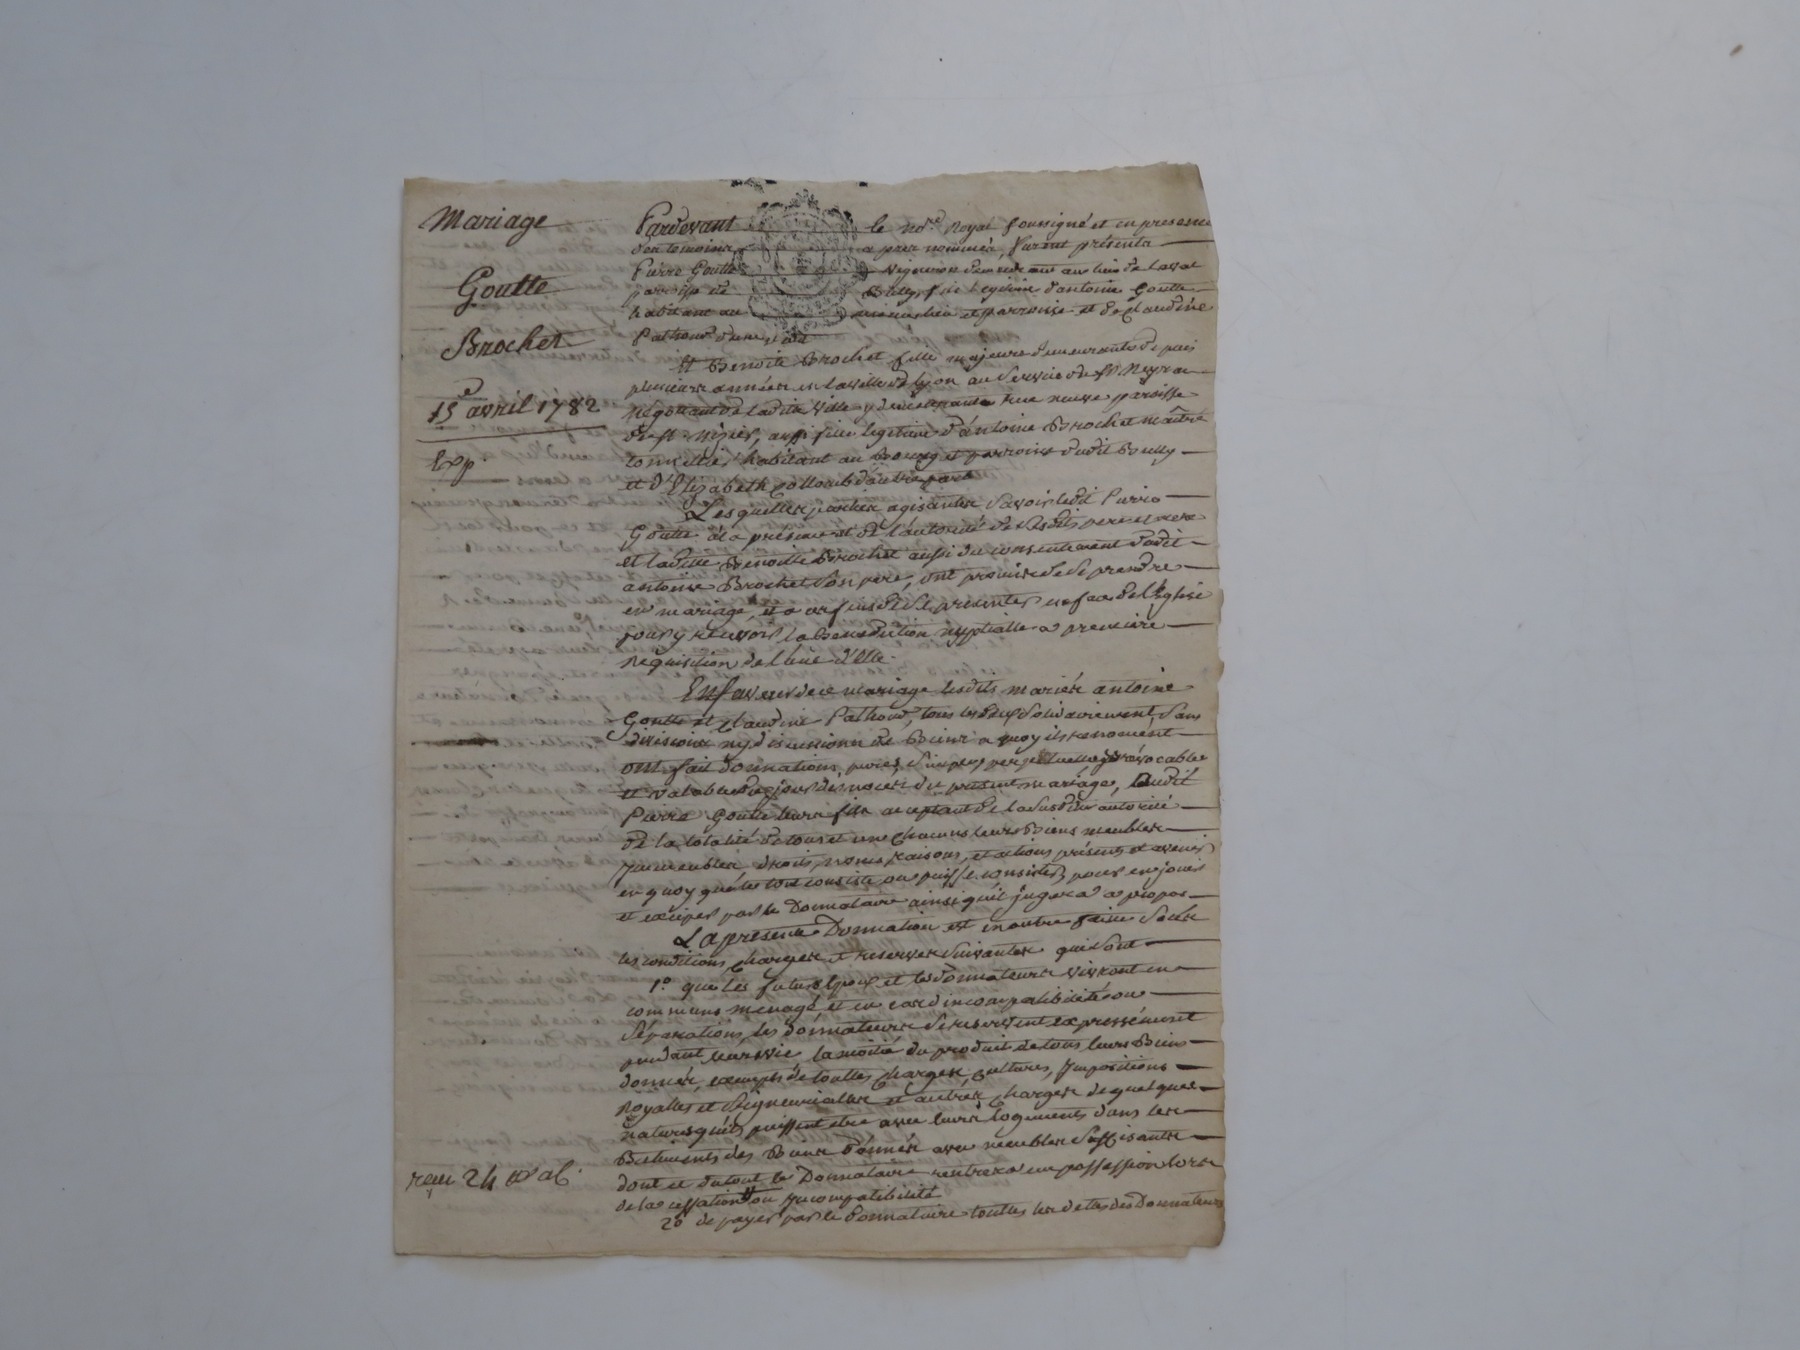 Mariage
Goutte
Brochet
15 avril 1782
Exp.
reçu 24
Pardevant le no.re Royal soussigné et en presence
des temoins apres nommés, furent présents
Pierre Goutte Vigneron demeurant au lieu de Laval
paroisse de Bully, fils légitime d'antoine Goutte
habitant au même lieu et parroisse et de Claudine
Pathoud d'une part
Et Benoite Brochet fille majeure demeurante depuis
plusieurs années en la ville de Lyon au service de Sr
Negotiant de ladite Ville y demeurante rue neuve paroisse
de St. Nizier, aussi fille legitime d'antoine Brochet maître
tonnellier habitant au bourg et parroisse dudit Bully
et d'Elizabeth Collomb d'autre part
Lesquelles parties agissantes Savoir ledit Pierre
Goutte de la presence et de l'autorité de Sesdits pere et mere
et laditte Benoitte Brochet aussi du consentement dudit
antoine Brochet Son pere, ont promis de Se prendre
en mariage, et a ces fins de Se presenter en face de l'Eglise
pour y recevoir la benediction nuptialle a premiere
requisition de l'une d'Elle.
En faveur de ce mariage lesdits mariés antoine
Goutte et Claudine Pathoud, tous les deux Solidairement, Sans
division ny discussion de Biens a quoy ils renoncent
ont fait donnation pure, Simple, perpetuelle irrévocable
et valable du jour des noces du present mariage, audit
Pierre Goutte leurs fils acceptant de la Susditte autorité
de la totalité de tous et un chacuns leurs Biens meubles
Immeubles droits, noms, raisons, et actions présents et avenir
en quoy que le tout consiste ou puisse consister, pour en jouir
et par le Donnataire ainsi quil jugera a propos
La presente Donnation est en outre faite Sous
les conditions, Charges et reserves Suivantes qui Sont
1.° que les futurs Epoux et les donnateurs vivront en
commun menage, et en cas d'incompatibilité ou
Séparation, les donnateurs Se reservent expressément
pendant leurs vie la moitié du produit de tous leurs Biens
donnés, exempts de touttes Charges, cultures, Impositions
Royalles et Seigneurialles et autres Charges de quelques
natures quels puissent etre avec leurs logements dans les
Batiments des Biens donnés avec meubles Suffisants
dont et du tout le Donnataire rentrera en possession lors
de la cessation ou Incompatibilité
2.° de payer par le Donnataire touttes les dettes des Donnateurs